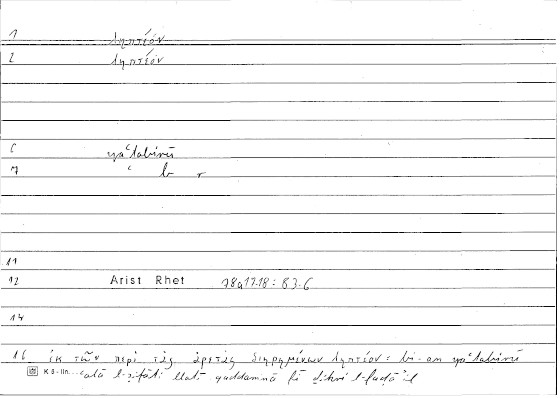 1 ληπτέον
2 ληπτέον
6 yaʿtabirū
7 ʿ b r
11
12 Arist Rhet 78a17-18 : 83.6
14
16 ἐκ τῶν περὶ τὰς ἀρετὰς διῃρημένων ληπτέον : bi-an yaʿtabirū
K 8 - lin... ʿalā l-ṣifāti llatī quddamnā fī ḏikri l-faḍāʾil